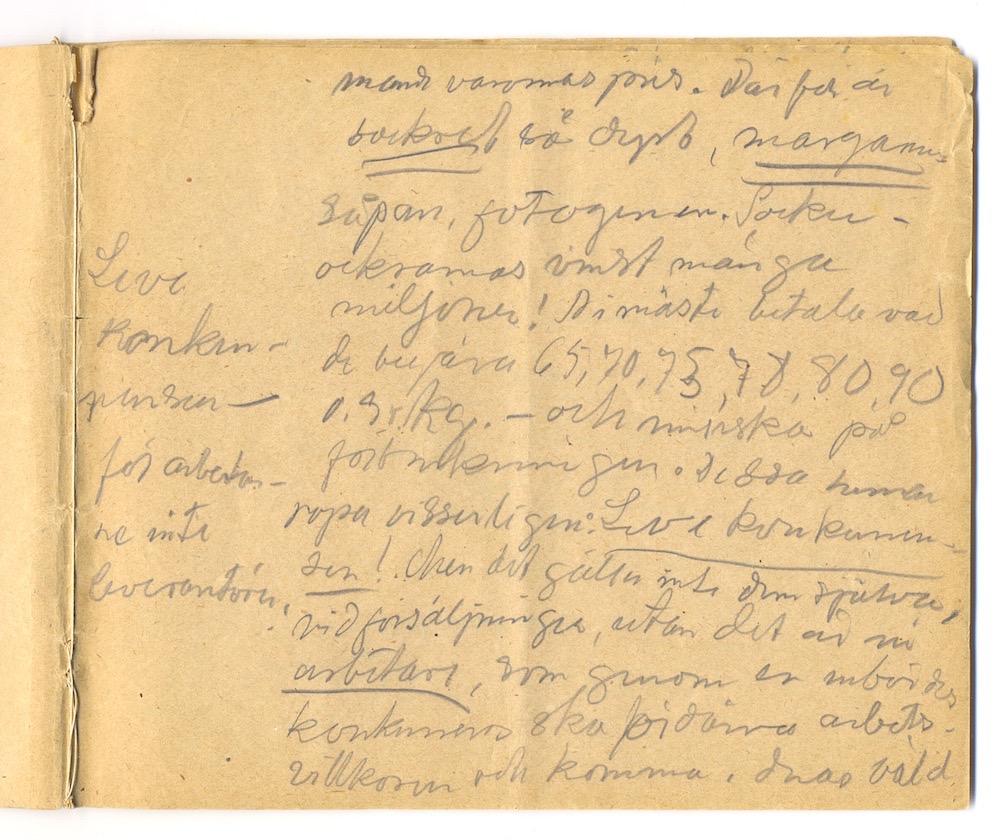 varornas pris. Därför är
sockret så dyrt, margarin,
såpan, fotogenen. Socker-
ockrarnas vinst många
miljoner! Vi måste betala vad
de begära 65, 70, 75, 78, 80, 90
/kg. – och minska på
förbrukningen. Dessa herrar
ropa visserligen: Leve konkurren-
sen! Men det gäller inte dem själva,
vid försäljningen, utan det är vi
arbetare, som genom en inbördes
konkurrens ska arbets-
villkoren och komma i deras våld
Leve
konkur-
rensen –
för arbetar-
ne inte
leverantörer.